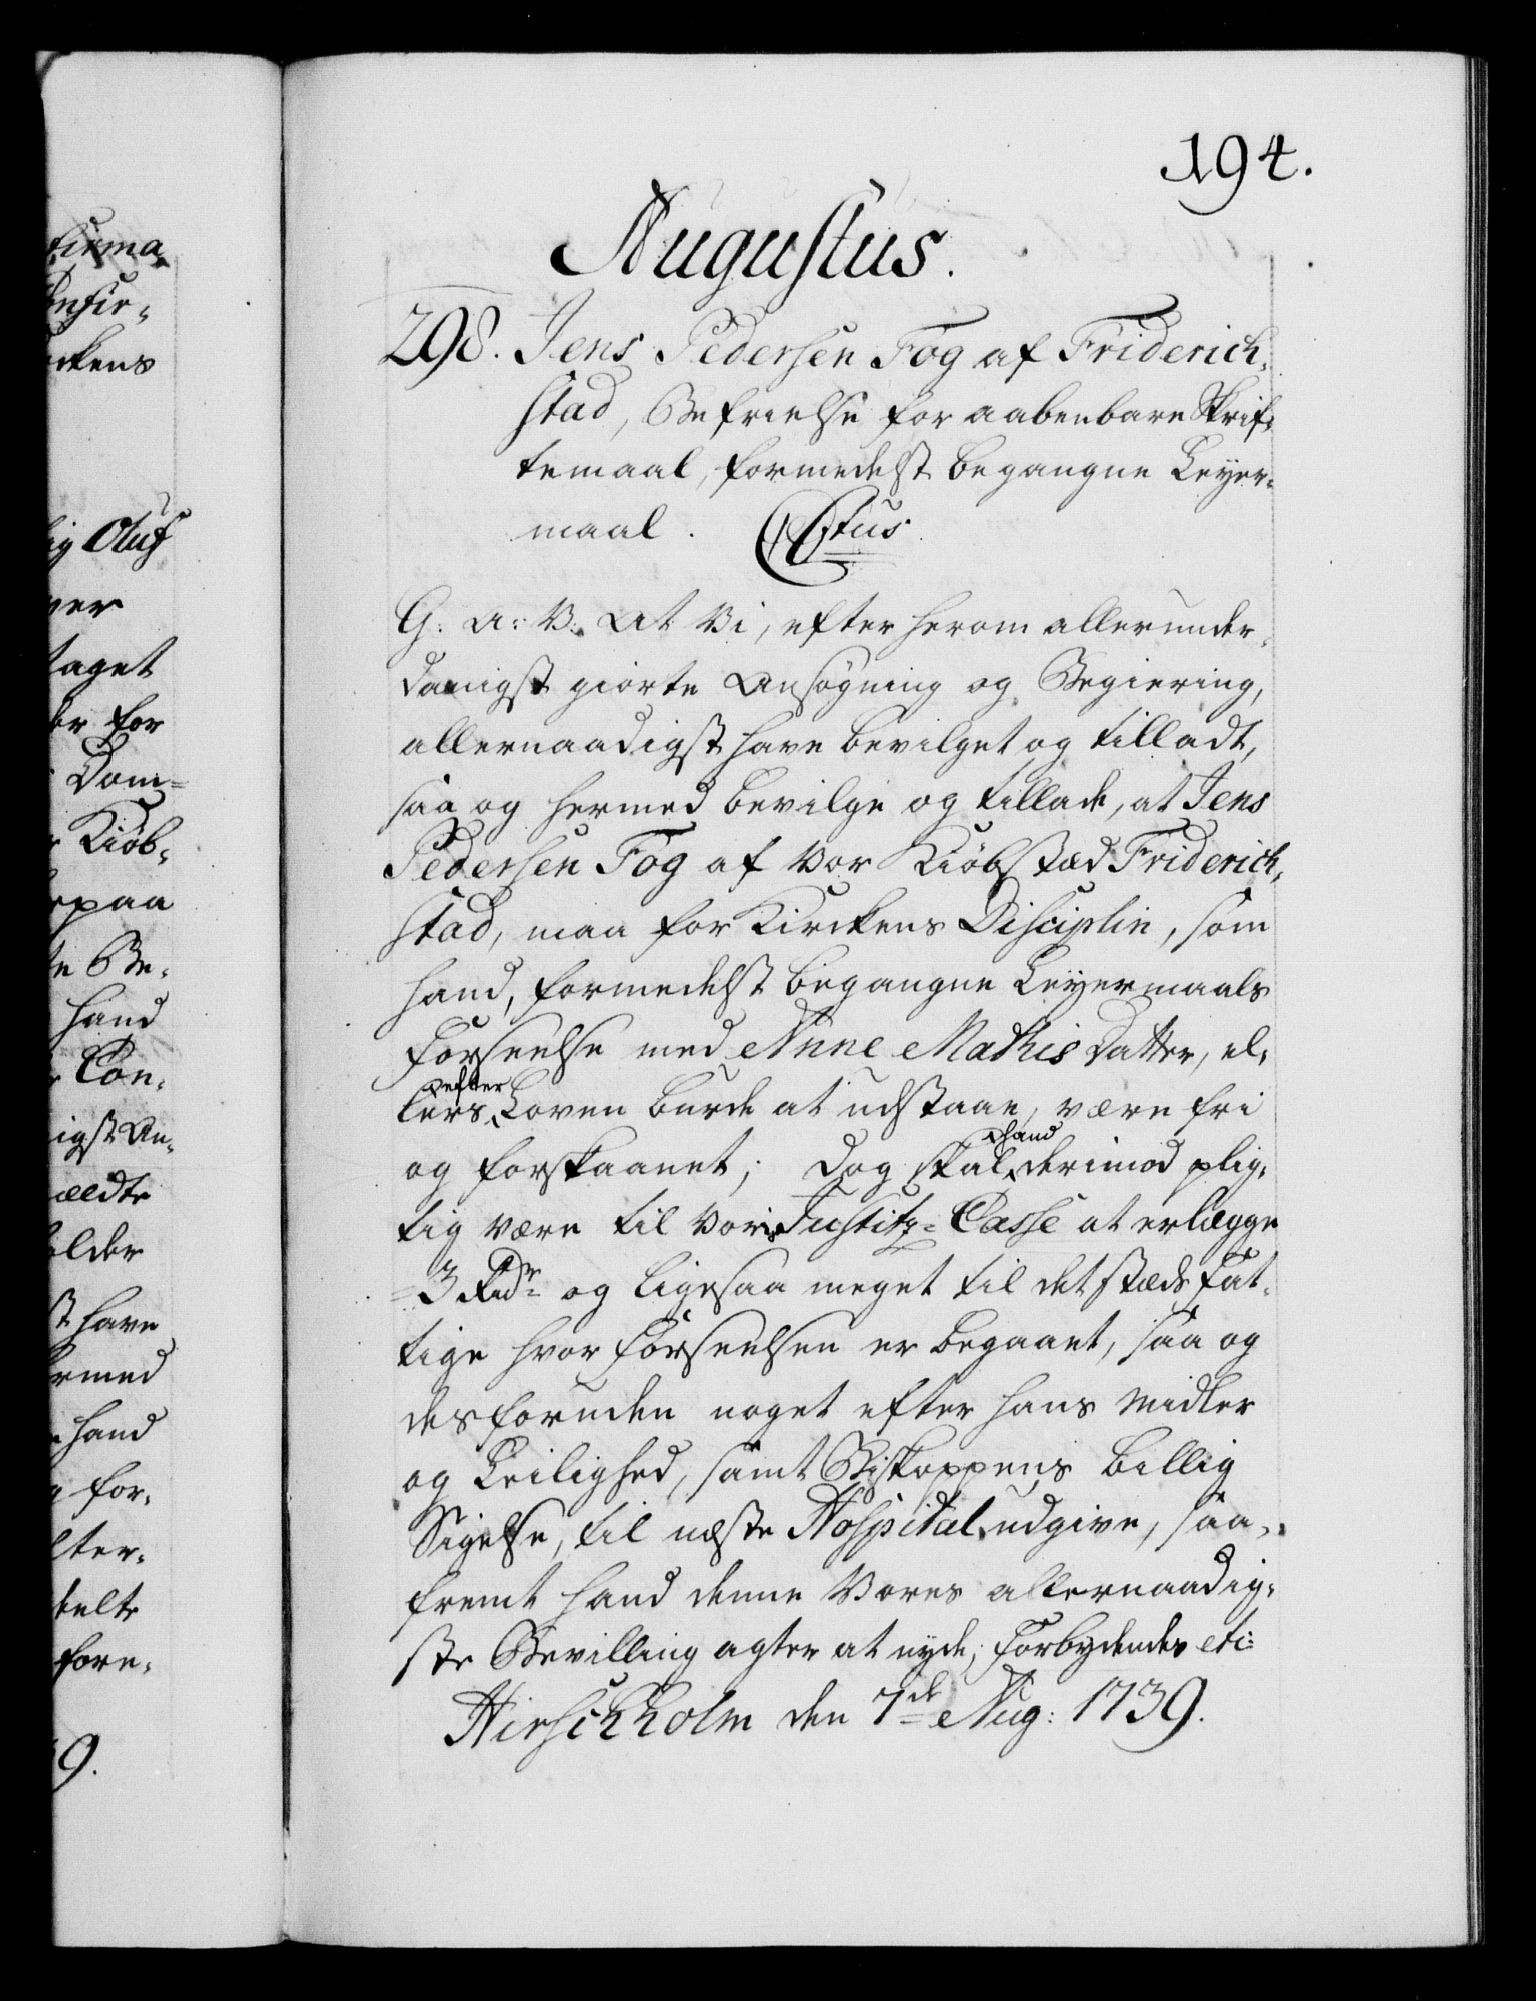 194.
Augustus.
298. Jens Pedersen Fog af Friderich-
stad, Befrielse for aabenbare Skrif-
temaal, formedelst begangne Leyer-
maal. CStus
G: A: V: At Vi, efter herom allerunder-
danigst giorte Ansøgning og Begiering,
allernaadigst have bevilget og tilladt,
saa og hermed bevilge og tillade, at Jens
Pedersen Fog af Vor Kiøbstæd Friderich-
stad, maa for Kirckens Disciplin, som
hand, formedelst begangne Leyermaals
Forseelse med Anne Mathis Datter, el-
lers efter Loven burde at udstaae, være fri
og forskaanet; Dog skal hand derimod plig-
tig være til Vor Justitz-Casse at erlægge
3 Rdr og ligesaa meget til det stæds Fat-
tige hvor Forseelsen er begaaet, saa og
desforuden noget efter hans Midler
og Leilighed, samt Biskoppens billig
Sigelse, til næste Hospital udgive, saa-
fremt hand denne Vores allernaadig-
ste Bevilling agter at nyde; Forbydendes etc:
Hirschholm den 7de Aug: 1739.
firma-
Confir-
rckens
ig Oluf
ver
taget
er for
Dom=
Kiøb-
epaa
te Be-
hand
Con-
igst An-
ældte
older
st have
rmed
hand
g for-
lter-
telte
fore-
9.